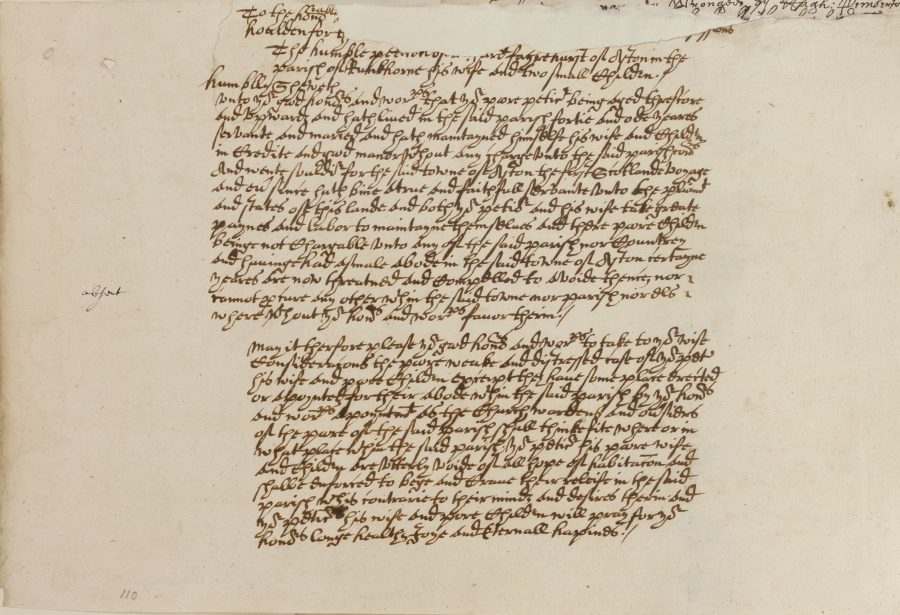 To the honble
houlden for
The humble peticion hurst of Aston in the
parish of Runkhorne his wife and two small Children /
humbly Sheweth
unto yor good honrs and worrs that yor poore peticr being aged threscore
and upwards and hath lived in the said parish fortie and ode yeares
servante and maried and hath maintayned himselfe his wife and Children
in Credite and good maner without any charge unto the said parish
And wente souldr for the said towne of Aston the first Scotlande voyage
and ever since hath bine a true and faithfull servante unto the
and states of this lande and both yor peticr and his wife take greate
paynes and labor to maintayne themselves and there poore Children
beinge not Chargable unto any of the said parish nor Countrey
and havinge had a smale abode in the said towne of Aston certayne
yeares are now threatned and Compelled to avoide thence nor
cannot pcure any other wthin the said towne nor parish nor els
where wthout yor honrs and worrs favor therin /
absent
May it therfore please yor good honrs and worrs to take to yor wise
Consideracons the poore weake and distressed case of yor petr
his wife and poore Children except they have some place erected
or apoynted for their abode wthin the said parish by yor honrs
and worrs apoyntmt as the Churchwardens and ovrsiers
of the poore of the said parish shall thinke fite where or in
what place wthin the said parish yor peticr his poore wife
and Children are utterly voide of all hope of habitacon and
shalbe enforced to bege and Crave their releife in the said
parish wch is contrarie to their minds and desires therin and
yor peticr his wife and poore Children will pray for yor
honrs longe health Joye and Eternall hapines /
110